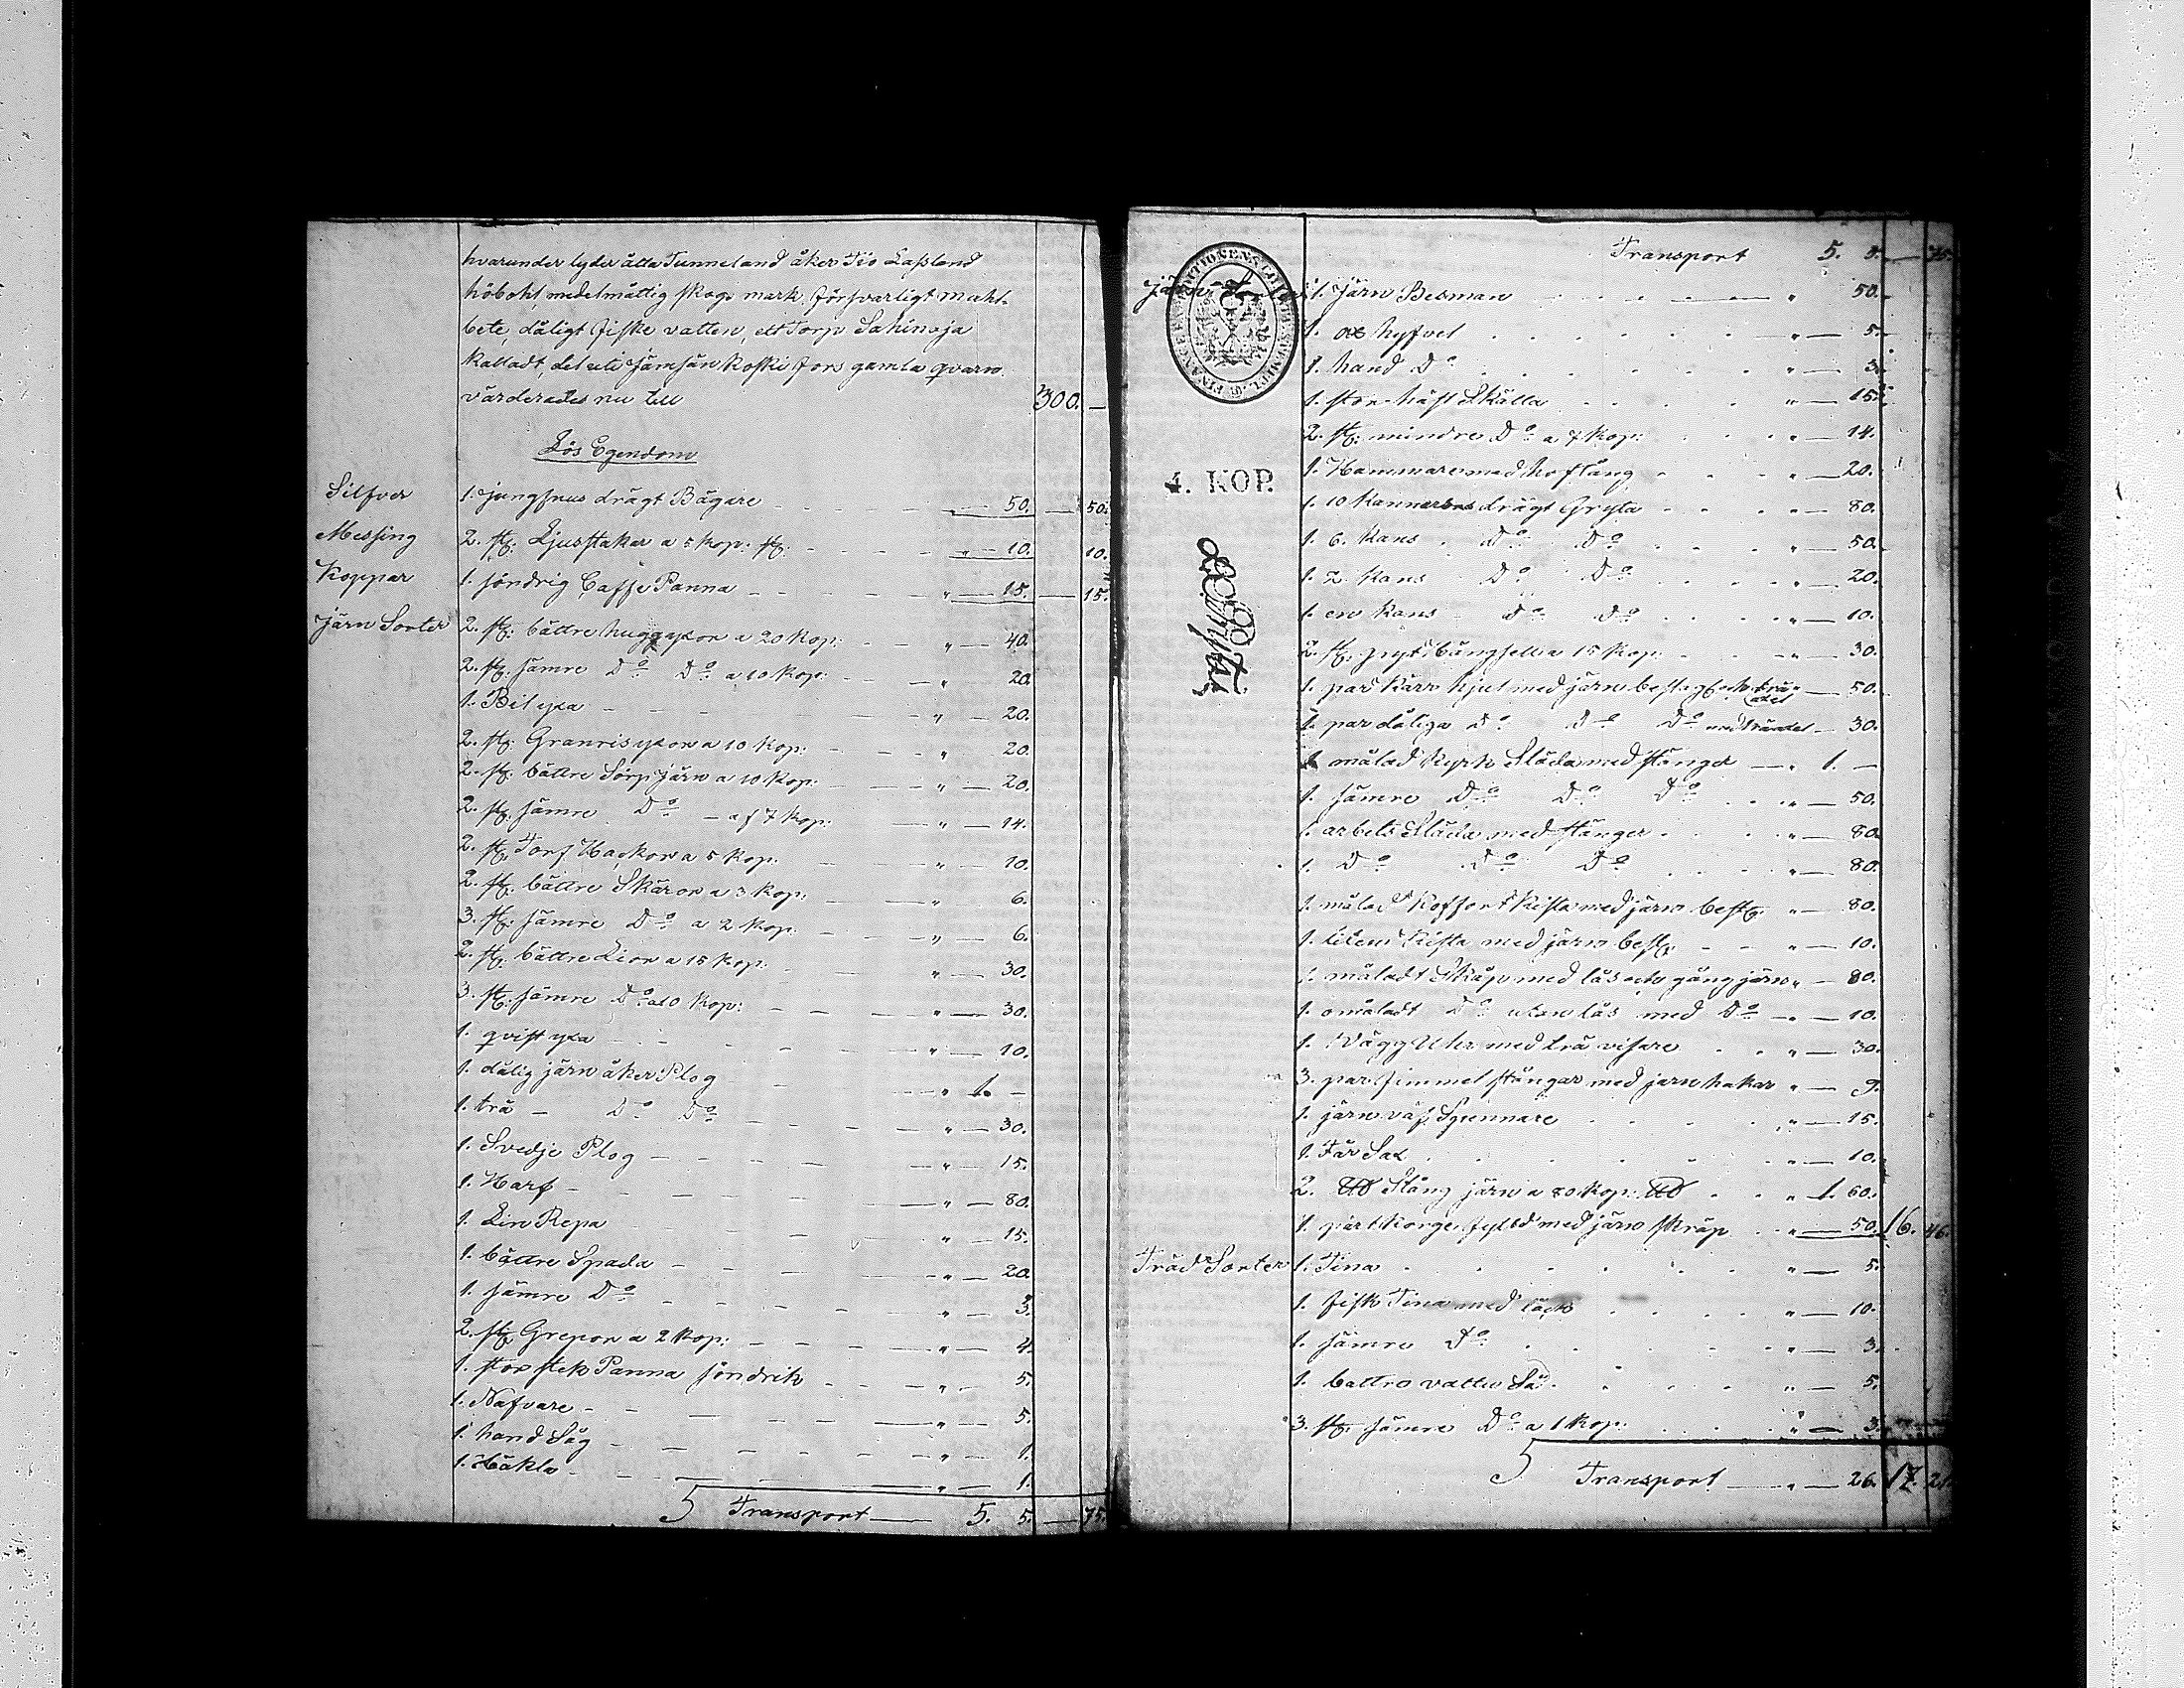 hvarunder lyder åtta Tunneland åker Tio Lassland
höbohl medelmåttig skogs mark, försvarligt muhl-
bete, dåligt fiske vatten, ett Torp Sahinoja
kalladt, del uti Jämsän koski fors gamla qvarn
värderades nu till 300. —
Lös Egendom
Silfver 1. jungfrus drägt Bägare — 50. — 50.
Messing 2. st: Ljusstakar a 5 kop: st: " — 10. 10.
Koppar 1. söndrig Caffe Panna " — 15. — 15.
Järn Sorter 2. st: bättre huggyxor a 20 kop: " — 40.
2. st: sämre Do Do a 10 kop: " 20.
1. Bilyxa " — 20.
2. st: Granrisyxor a 10 kop: " 20.
2. st: bättre Sörpjärn a 10 kop: " — 20.
2. st: sämre Do — af 7 kop: " — 14.
2. st. Torf Hackor a 5 kop: " 10.
2. st. bättre Skäror a 3 kop: " 6.
3. st: sämre Do a 2 kop: " — 6.
2. st: bättre Lior a 15 kop: " — 30.
3. st: sämre Do a 10 kop: " — 30.
1. qvist yxa " — 10.
1. dålig järn åker Plog " 1. —
1. trä — Do Do " — 30.
1. Svedje Plog " — 15.
1. Harf " — 80.
1. Lin Repa " — 15.
1. bättre Spada " — 20.
1. sämre Do " — 3.
2. st: Grepor a 2 kop: " — 4.
1. stor stek Panna söndrik " — 5.
1. Nafvare " — 5.
1. hand Såg " — 1.
1. Häkla " — 1.
Transport — 5. 5. — 75.
Transport 5. 5. — 75.
Järn 1. Järn Besman " 50.
1. ox hyfvel " — 5.
1. hand Do " — 3.
1. stor häst Skälla " — 15.
2. st: mindre Do a 7 kop: " — 14.
4. KOP.
1. Hammare med hoftång " — 20.
1. 10 Kannors drägt Gryta " — 80.
1. 6. Kans Do Do " — 50.
1. 2. Kans Do Do " — 20.
1. en Kans Do Do " — 10.
2. st: gryt bängsell a 15 kop: " — 30.
1. par Kärr hjul med järn beslag och trä axel — 50.
1. par dåliga Do Do Do med träaxel — 30.
1. målad Kyrk Släda med stänger — " 1. —
1. sämre Do Do Do " — 50.
1. arbets Släda med stänger " — 80.
1. Do Do Do " — 80.
1. målad Koffort Kista med järn besl: " — 80.
1. liten Kista med järn besl: " — 10.
1. måladt Skåp med lås och gångjärn " — 80.
1. omåladt Do utan lås med Do " — 10.
1. Vägg Uhr med trä visare " — 30.
3. par fimmel stångar med järn hakar " — 9.
1. järn väf Spennare " — 15.
1. Får Sax " — 10.
2. Stång järn a 80 kop: " 1. 60.
1. pärtkorge fylld med järn skräp " — 50. 16. 46.
Träd Sorter 1. Tina " — 5.
1. fisk Tina med läck " — 10.
1. sämre Do " — 3.
1. battre vatten Så " — 5.
3. st: sämre Do a 1 kop: " — 3.
Transport — " — 26. 17. 21.